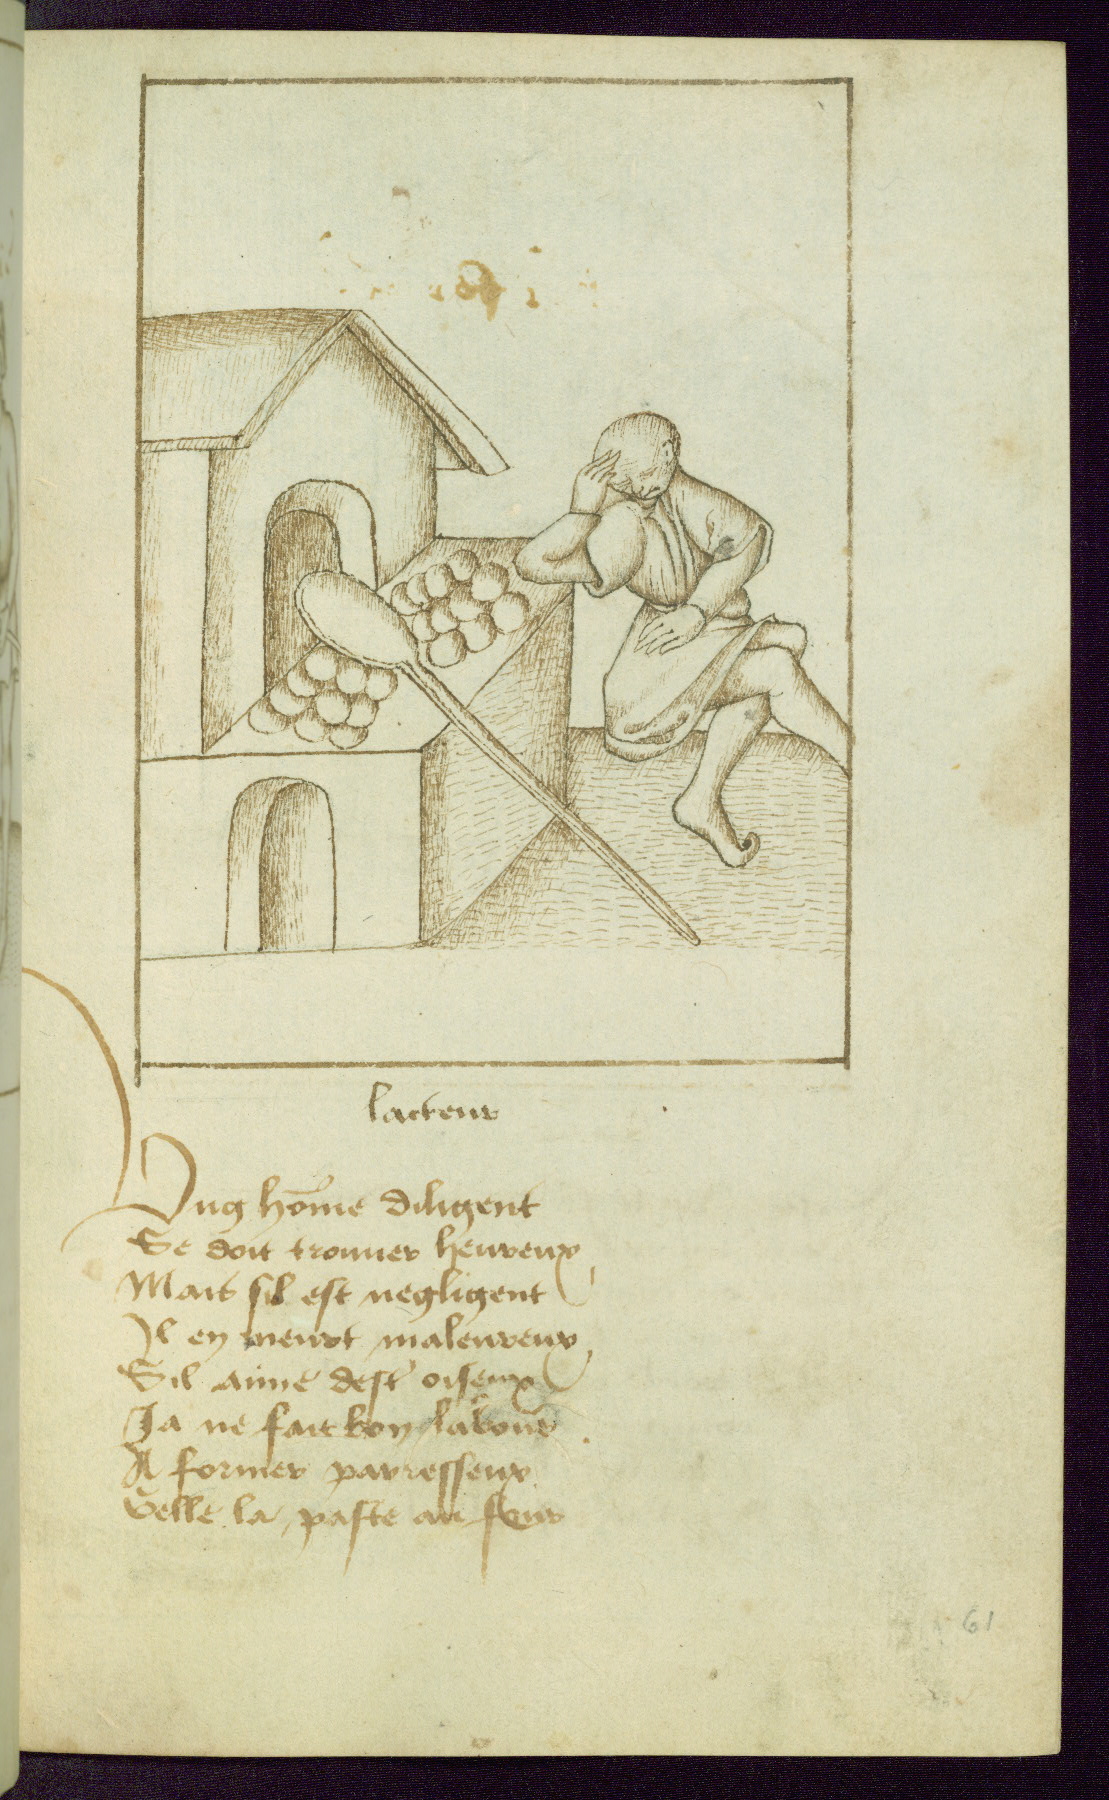 lacteur
Ung hōme diligent
Se doit trouuer heureux
Mais sil est negligent
Il en meurt maleureux
Sil aime dest' oiseux
Ja ne fait bon labour
A former parresseux
Gelle la paste au four
61